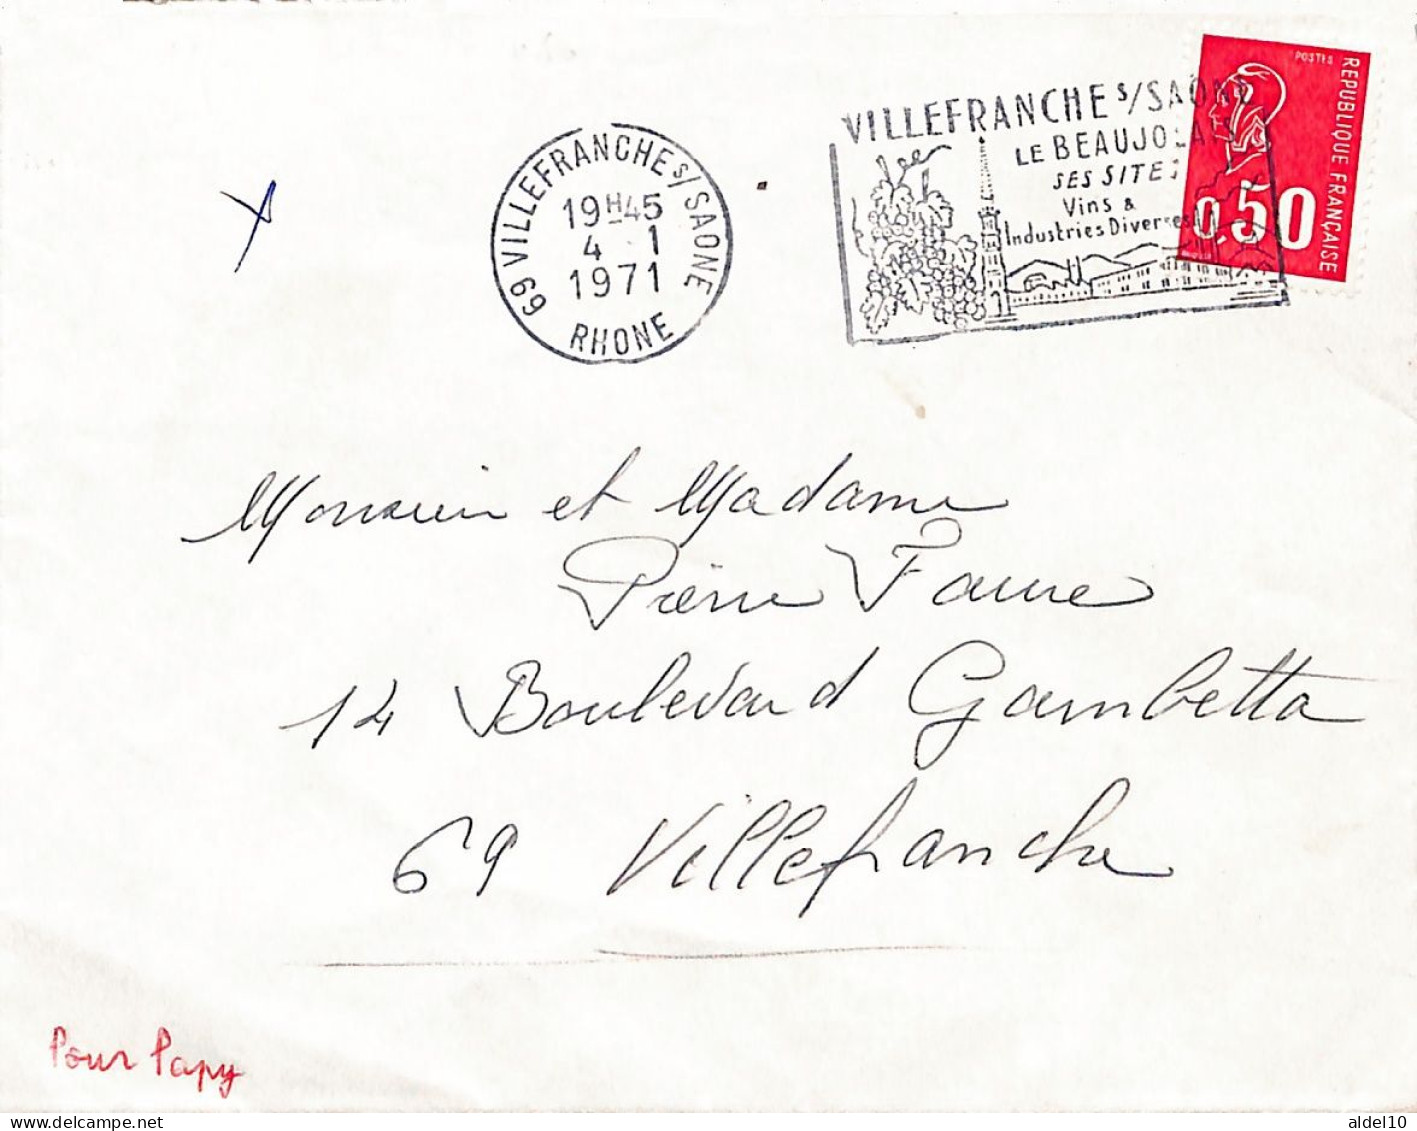 69 VILLEFRANCHE S/SAONE
19H45
4 1
1971
RHONE
VILLEFRANCHE S/SAÔNE
LE BEAUJOLAIS
SES SITES
Vins &
Industries Diverses
POSTES
REPUBLIQUE FRANÇAISE
0,50
Monsieur et Madame
Pierre Favre
14 Boulevard Gambetta
69 Villefranche
Pour Papy
delcampe.net
aldel10